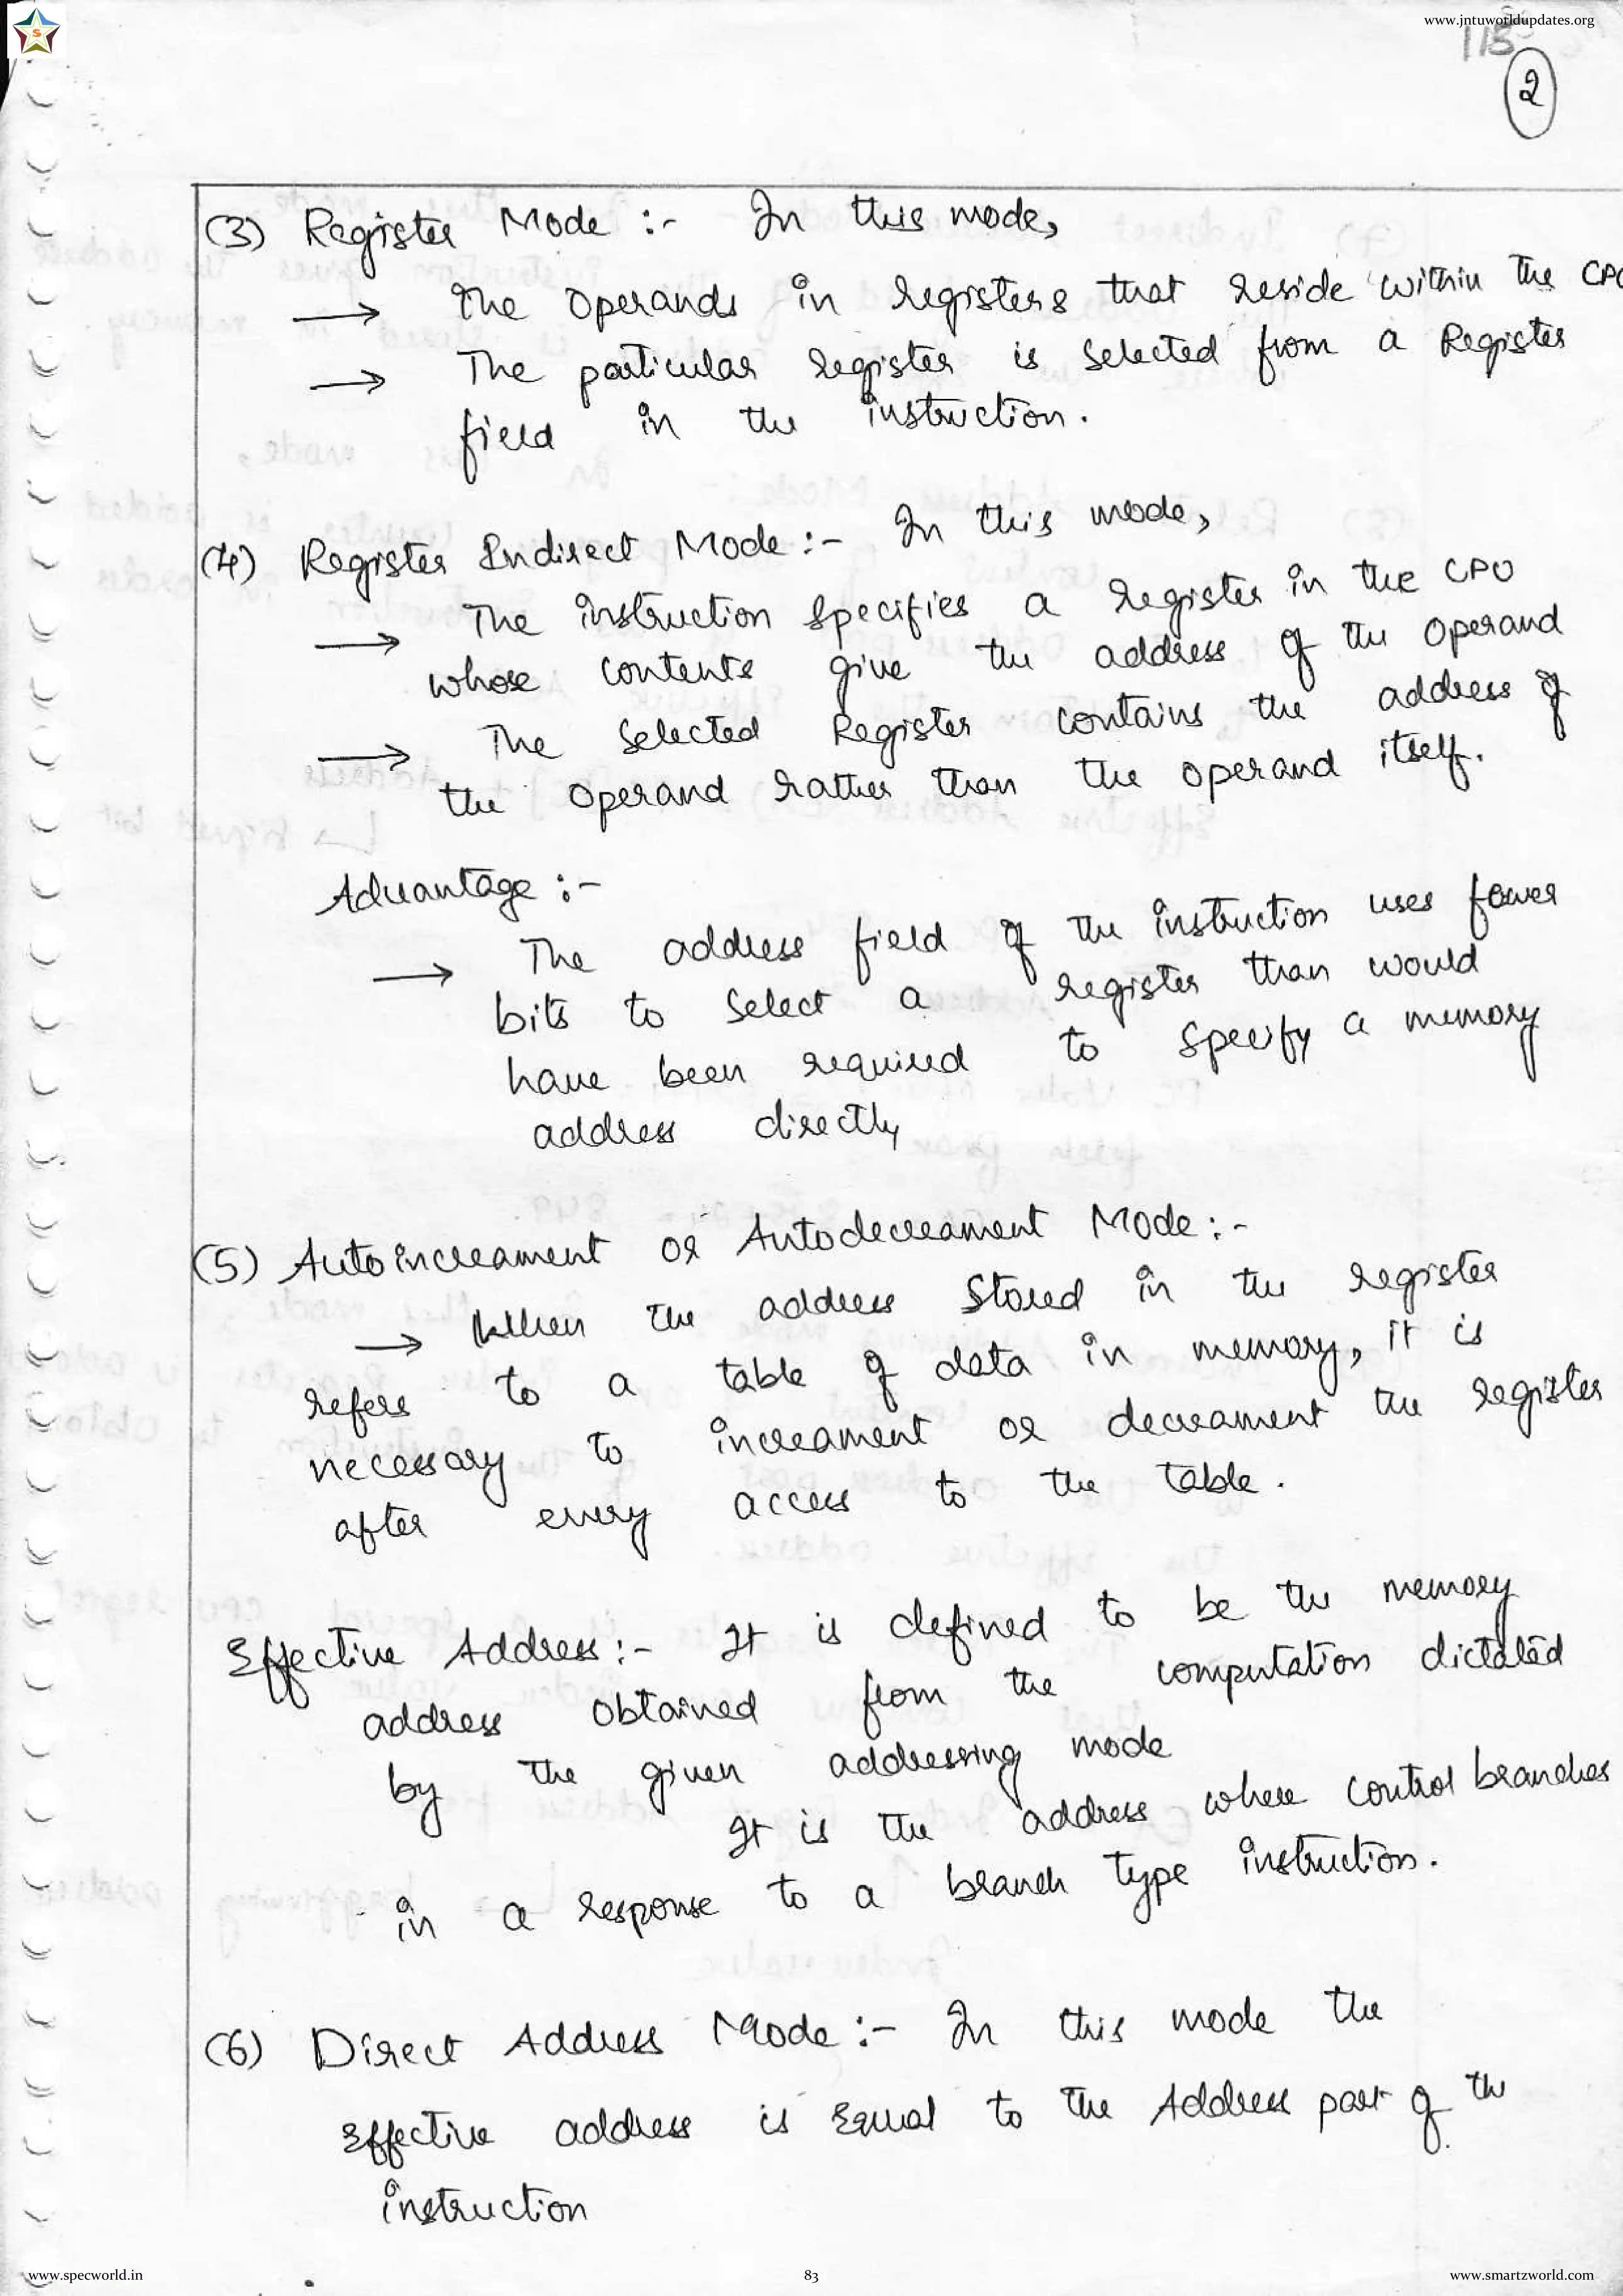 www.jntuworldupdates.org
S
115
2
(3) Register Mode :- In this mode,
→ the operands in registers that reside within the CPU
→ The particular register is selected from a Register
field in the instruction.
(4) Register Indirect Mode :- In this mode,
→ The instruction specifies a register in the CPU
whose contents give the address of the operand
→ The selected Register contains the address of
the operand rather than the operand itself.
Advantage :-
→ The address field of the instruction uses fewer
bits to select a register than would
have been required to specify a memory
address directly
(5) Autoincreament or Autodecreament Mode :-
→ When the address stored in the register
refers to a table of data in memory, it is
necessary to increament or decreament the register
after every access to the table.
Effective Address :- It is defined to be the memory
address obtained from the computation dictated
by the given addressing mode
It is the address where control branches
in a response to a branch type instruction.
(6) Direct Address Mode :- In this mode the
Effective address is Equal to the Address part of the
instruction
www.specworld.in
83
www.smartzworld.com